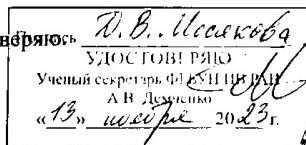 Подпись Д.В. Мосякова
УДОСТОВЕРЯЮ
Ученый секретарь ФГБУН ИВ РАН
А.В. Демченко
«13» ноября 2023 г.